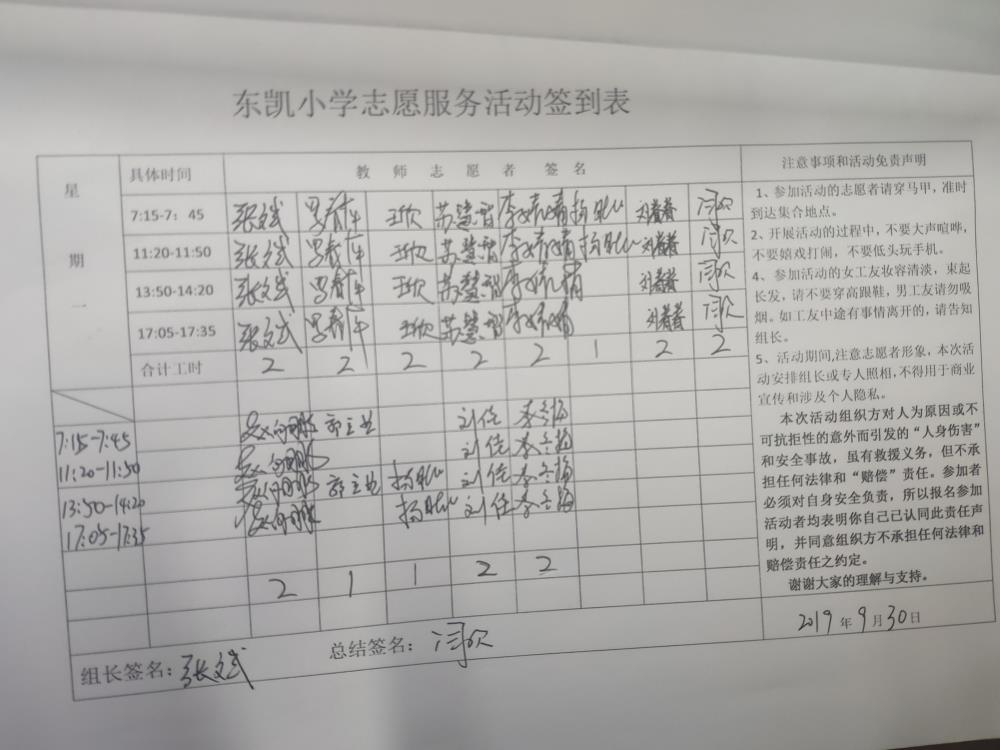 东凯小学志愿服务活动签到表
星期一 具体时间 教师志愿者签名 注意事项和活动免责声明
7:15-7：45 张文斌 王欣 苏慧智 李婧婧 刘春春 闫欣
11:20-11:50 张文斌 王欣 苏慧智 李婧婧 刘春春 闫欣
13:50-14:20 张文斌 王欣 苏慧智 李婧婧 刘春春 闫欣
17:05-17:35 张文斌 王欣 苏慧智 李婧婧 刘春春 闫欣
合计工时 2 2 2 2 2 1 2 2
7:15-7:45 刘佳 李冬梅
11:20-11:50 刘佳 李冬梅
13:50-14:20 刘佳 李冬梅
17:05-17:35 刘佳 李冬梅
2 1 1 2 2
1、参加活动的志愿者请穿马甲，准时
到达集合地点。
2、开展活动的过程中，不要大声喧哗，
不要嬉戏打闹，不要低头玩手机。
4、参加活动的女工友妆容清淡，束起
长发，请不要穿高跟鞋，男工友请勿吸
烟。如工友中途有事情离开的，请告知
组长。
5、活动期间,注意志愿者形象，本次活
动安排组长或专人照相,不得用于商业
宣传和涉及个人隐私。
本次活动组织方对人为原因或不
可抗拒性的意外而引发的“人身伤害”
和安全事故，虽有救援义务，但不承
担任何法律和“赔偿”责任。参加者
必须对自身安全负责，所以报名参加
活动者均表明你自己已认同此责任声
明，并同意组织方不承担任何法律和
赔偿责任之约定。
谢谢大家的理解与支持。
2019年9月30日
组长签名：张文斌 总结签名：闫欣